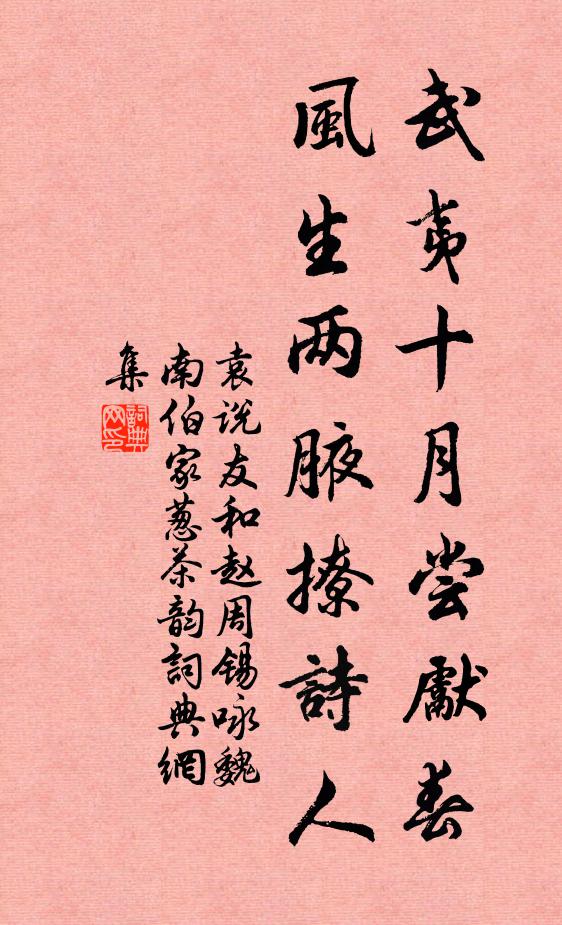 武夷十月尝獻春
風生两腋撩詩人
袁说友和赵周锡咏魏
南伯家葱茶韵詞典網
集
詞典
网印